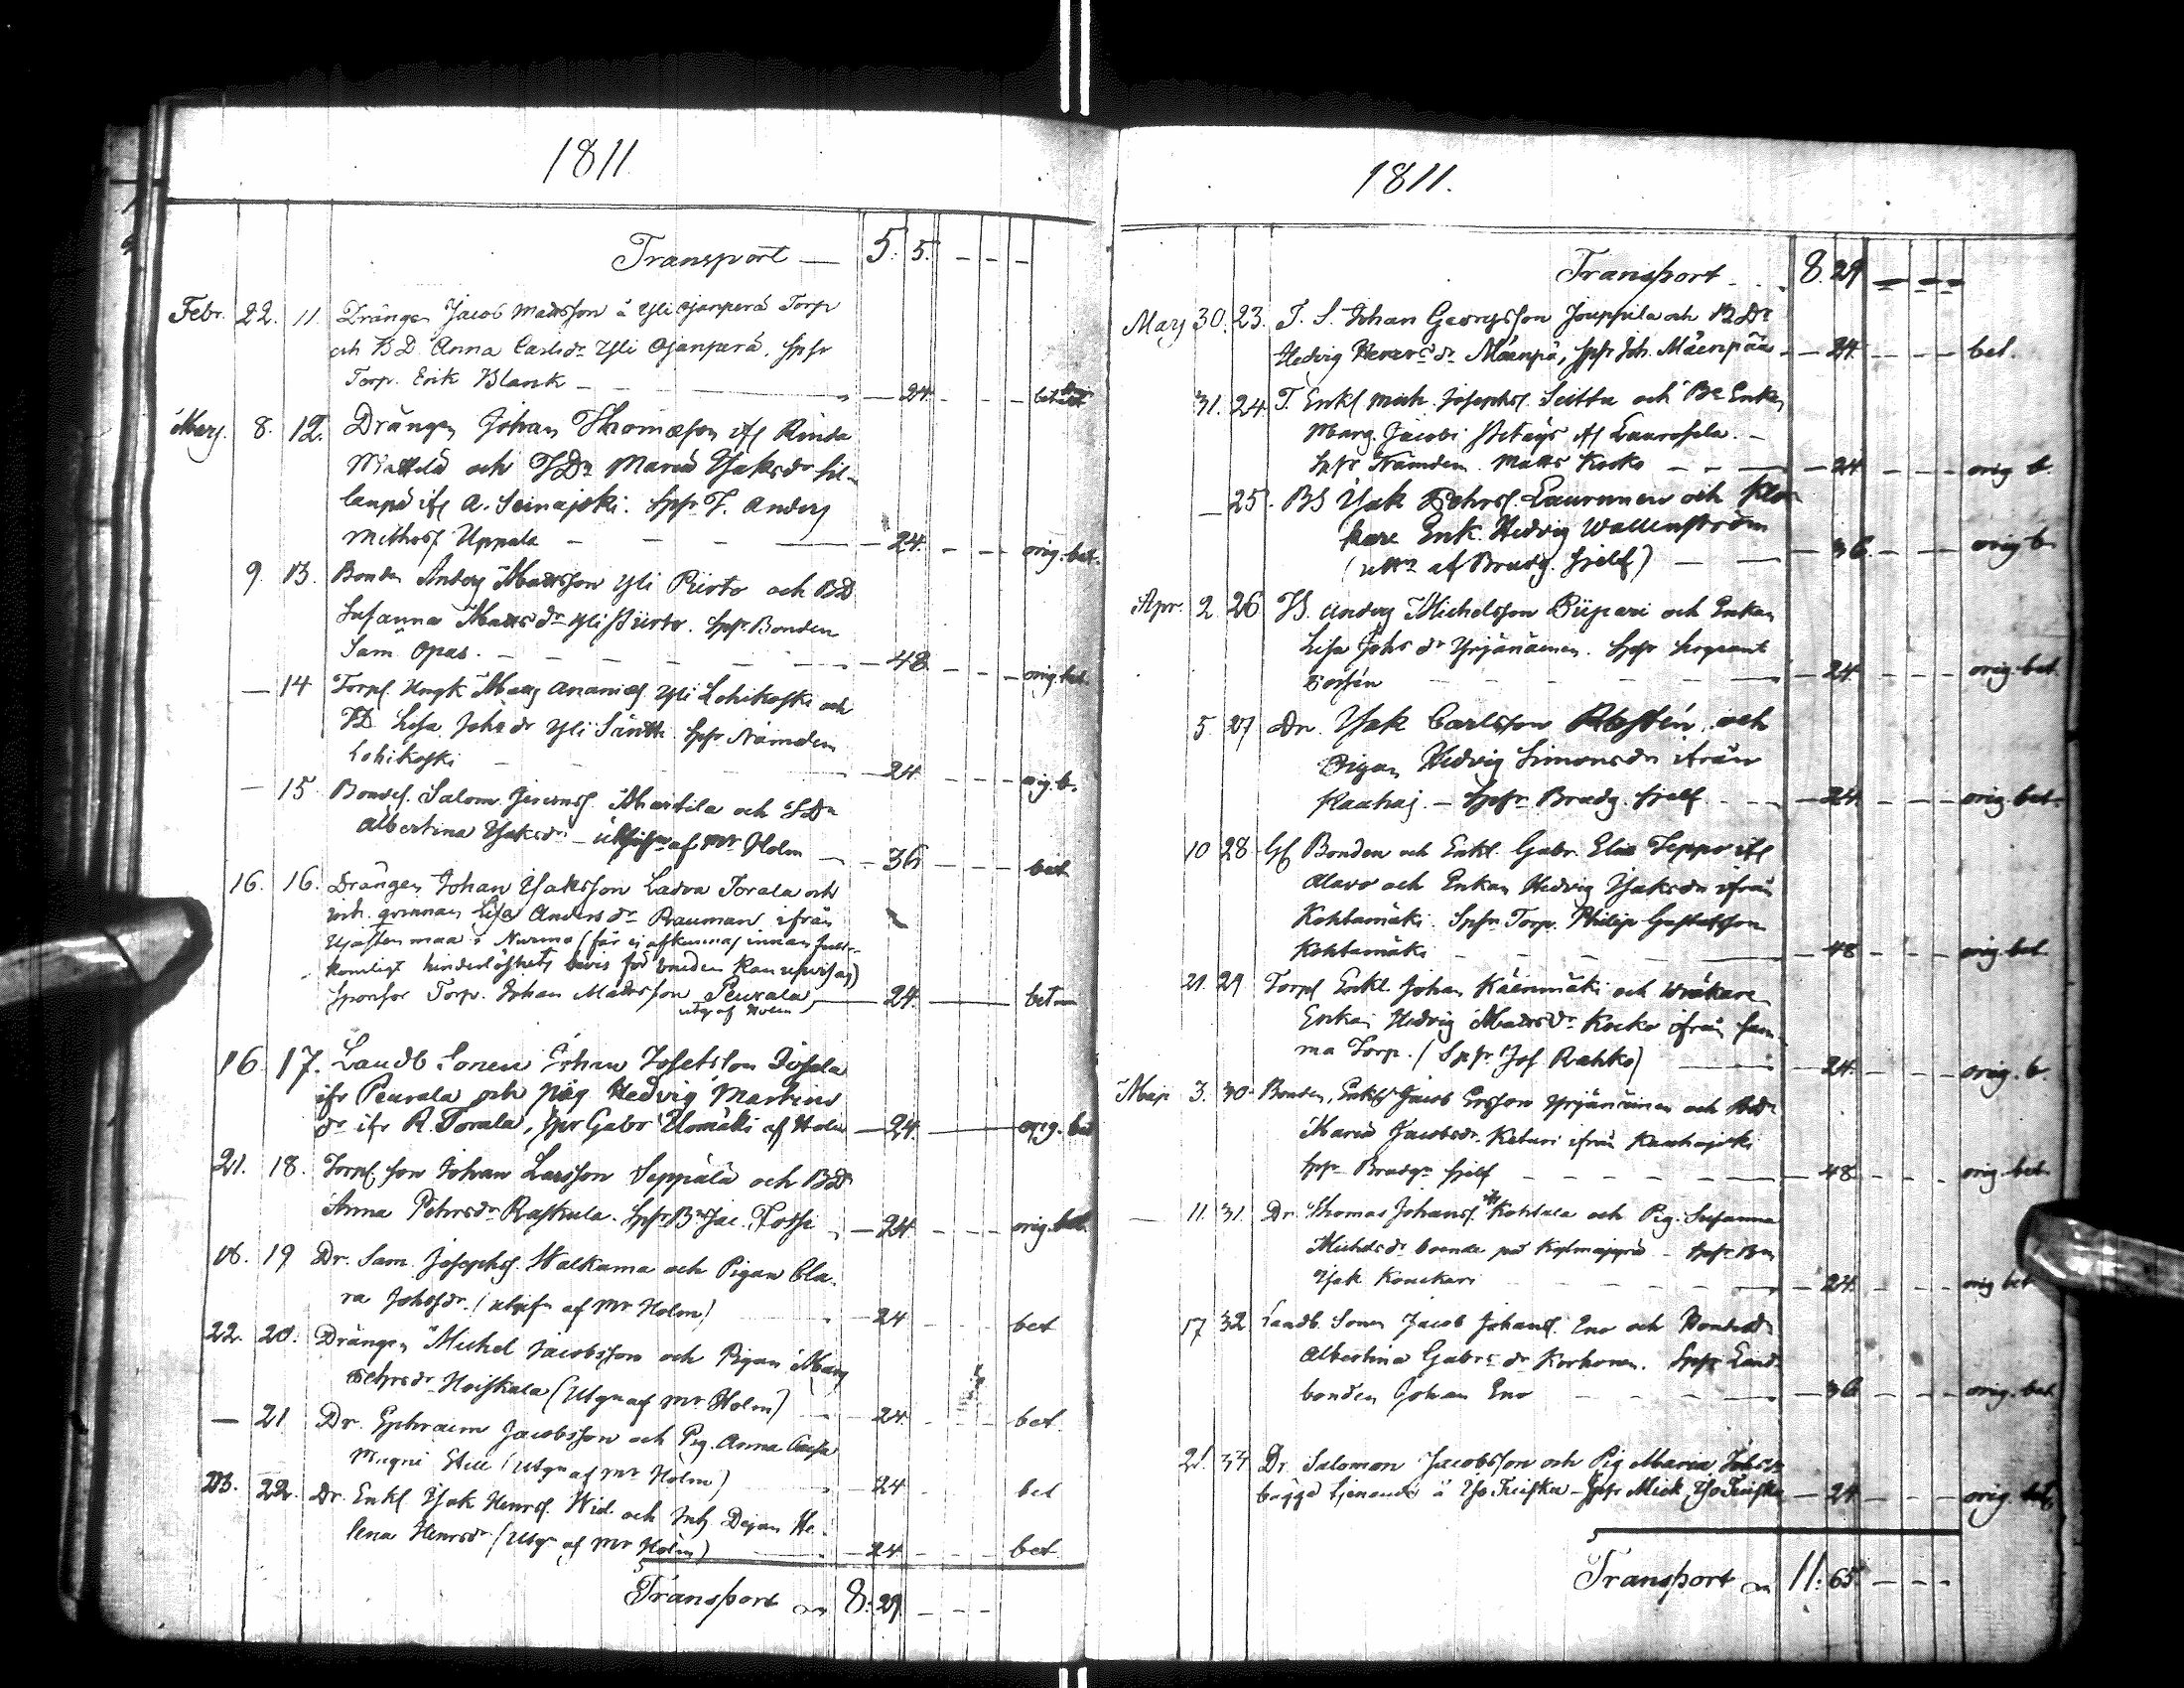 1811
Transport — 5. 5. - - -
Febr. 22. 11. Drängen Jacob Mattsson å Yli Ojanperä Torp
och BD. Anna Carlsdr Yli Ojanperä. Spsr
Torp. Erik Blank — 24. - - - bet
Marz. 8. 12. Drängen Johan Thomæson ifr Rinda
Mattila och TDr Maria Isaksdr Sil-
lanpä ifr A. Seinäjoki. Spsr T. Anders
Mithsf Uppala — 24. - - - orig. bet.
9. 13. Bonden Anders Mattsson Yli Riirto och BD
Susanna Mattsdr Yli Piirto. Spsr Bonden
Sam Opas. — 48 - - - orig. bet.
— 14 Torps. Ungk. Matts Ananiæs. Yli Lohikoski och
TD. Lisa Johsdr Yli Säntti. Spsr Nämdem
Lohikoski — 24 - - - orig. b.
— 15. Bondes. Salom. Martila och TDr
Albertina Isaksdr — af Mr Holm — 36 - - - bet
16. 16. Drängen Johan Isaksson Ladva Torala och
inh. qvinnan Lisa Andersdr Rauman ifrån
i Nurmo (får ej afkunnas innan full-
komligt hinderlöshets bevis för bruden kan upvisas)
Sponsor Torp. Johan Mattsson Peurala, — 24. — bet
utg af Holm
16. 17. Landb Sonen Johan Josefsson
ifr Peurala och Pig Hedvig Martins
dr ifr R. Torala, spr Gabr Elomäki af Holm — 24. — orig. bet
21. 18. Torps son Johan Larsson Seppälä och BDr
Anna Pehrsdr Raskula. Spsr Bn Jac. — 24. - - - orig. bet.
19 Dr. Sam. Josephs. Walkama och Pigan Cla-
ra Johsdr. (utgifn af Mr Holm) 24 - - - bet
22. 20. Drängen Michel Jacobsson och Pigan Marg
Pehrsdr Hoiskala (Utgn af Mr Holm) — 24. - - - bet.
— 21 Dr. Ephraim Jacobsson och Pig. Anna
(Utgn af Mr Holm) 24 - - - bet
23. 22. Dr. Enkl Isak Henrs. Wid. och Inh Dejan He-
lena Henrsdr (Utgn af Mr Holm) — 24 - - - bet
Transport 8. 29. - - -
1811.
Transport . . 8. 29 - - -
Marz 30. 23. T. S. Johan Georgsson Jouppila och BDr
Hedvig Henrsdr Mäenpä, Spsr Joh. Mäenpää — 24. - - - bet.
31. 24. T. Enkl Mich. Josephs. Seitta och Be Enkan
Marg. Jacobi ifr Laurosela. —
Spsr Nämdem. Matts Kocko — 24 - - - orig b.
— 25. BS Isak Pehrs. Laurunen och Klo-
kare Enk. Hedvig Wallenström
(af Brudg. sjelf) — 36 - - - orig b
Apr. 2. 26 Anders Michelsson Biipari och Enkan
Lisa Johsdr Yrjänäinen. Spsr Sergeant
— 24. - - - orig. bet
5. 27 Dr. Isak Carlsson och
Pigan Hedvig Simonsdr ifrån
Kaahaj. — Spsr Brudg. sjelf — 24 - - - orig. bet.
10 28. Bonden och Enkl. Gabr. Elias Teppo ifr
Alavo och Enkan Hedvig Isaksdr ifrån
Kohtamäki. Spsr Torp. Philip Gustafsson
Kohtamäki — 48 - - - orig. bet.
21. 29 Torps Enkl. Johan Käenmäki och
Enkan Hedvig Mattsdr Kocko ifrån sam-
ma Torp. (Spsr Jos. Rahko) — 24. - - - orig. b
Maji 3. 30. Bonden, Enkl Jacob Ersson Yrjänäinen och
Maria Jacobsdr. Keturi ifrån Kaahajoki
Spsr Brudgn sjelf — 48. - - - orig. bet.
— 11. 31. Dr. Thomas Johans. Kohtala och Pig. Susanna
Michelsdr boende på — Spsr Bn
Isak Kouckari — 24. - - - orig bet
17 32 Landb. Sonen Jacob Johans. Eno och Bondedr
Albertina Gabrsdr Korhonen. Spsr Land-
bonden Johan Eno — 36 - - - orig. bet
21. 33 Dr. Salomon Jacobsson och Pig Maria Johsdr
bägge tjenande å — Spsr Mick — 24 - - - orig. bet
Transport 11. 65. - - -